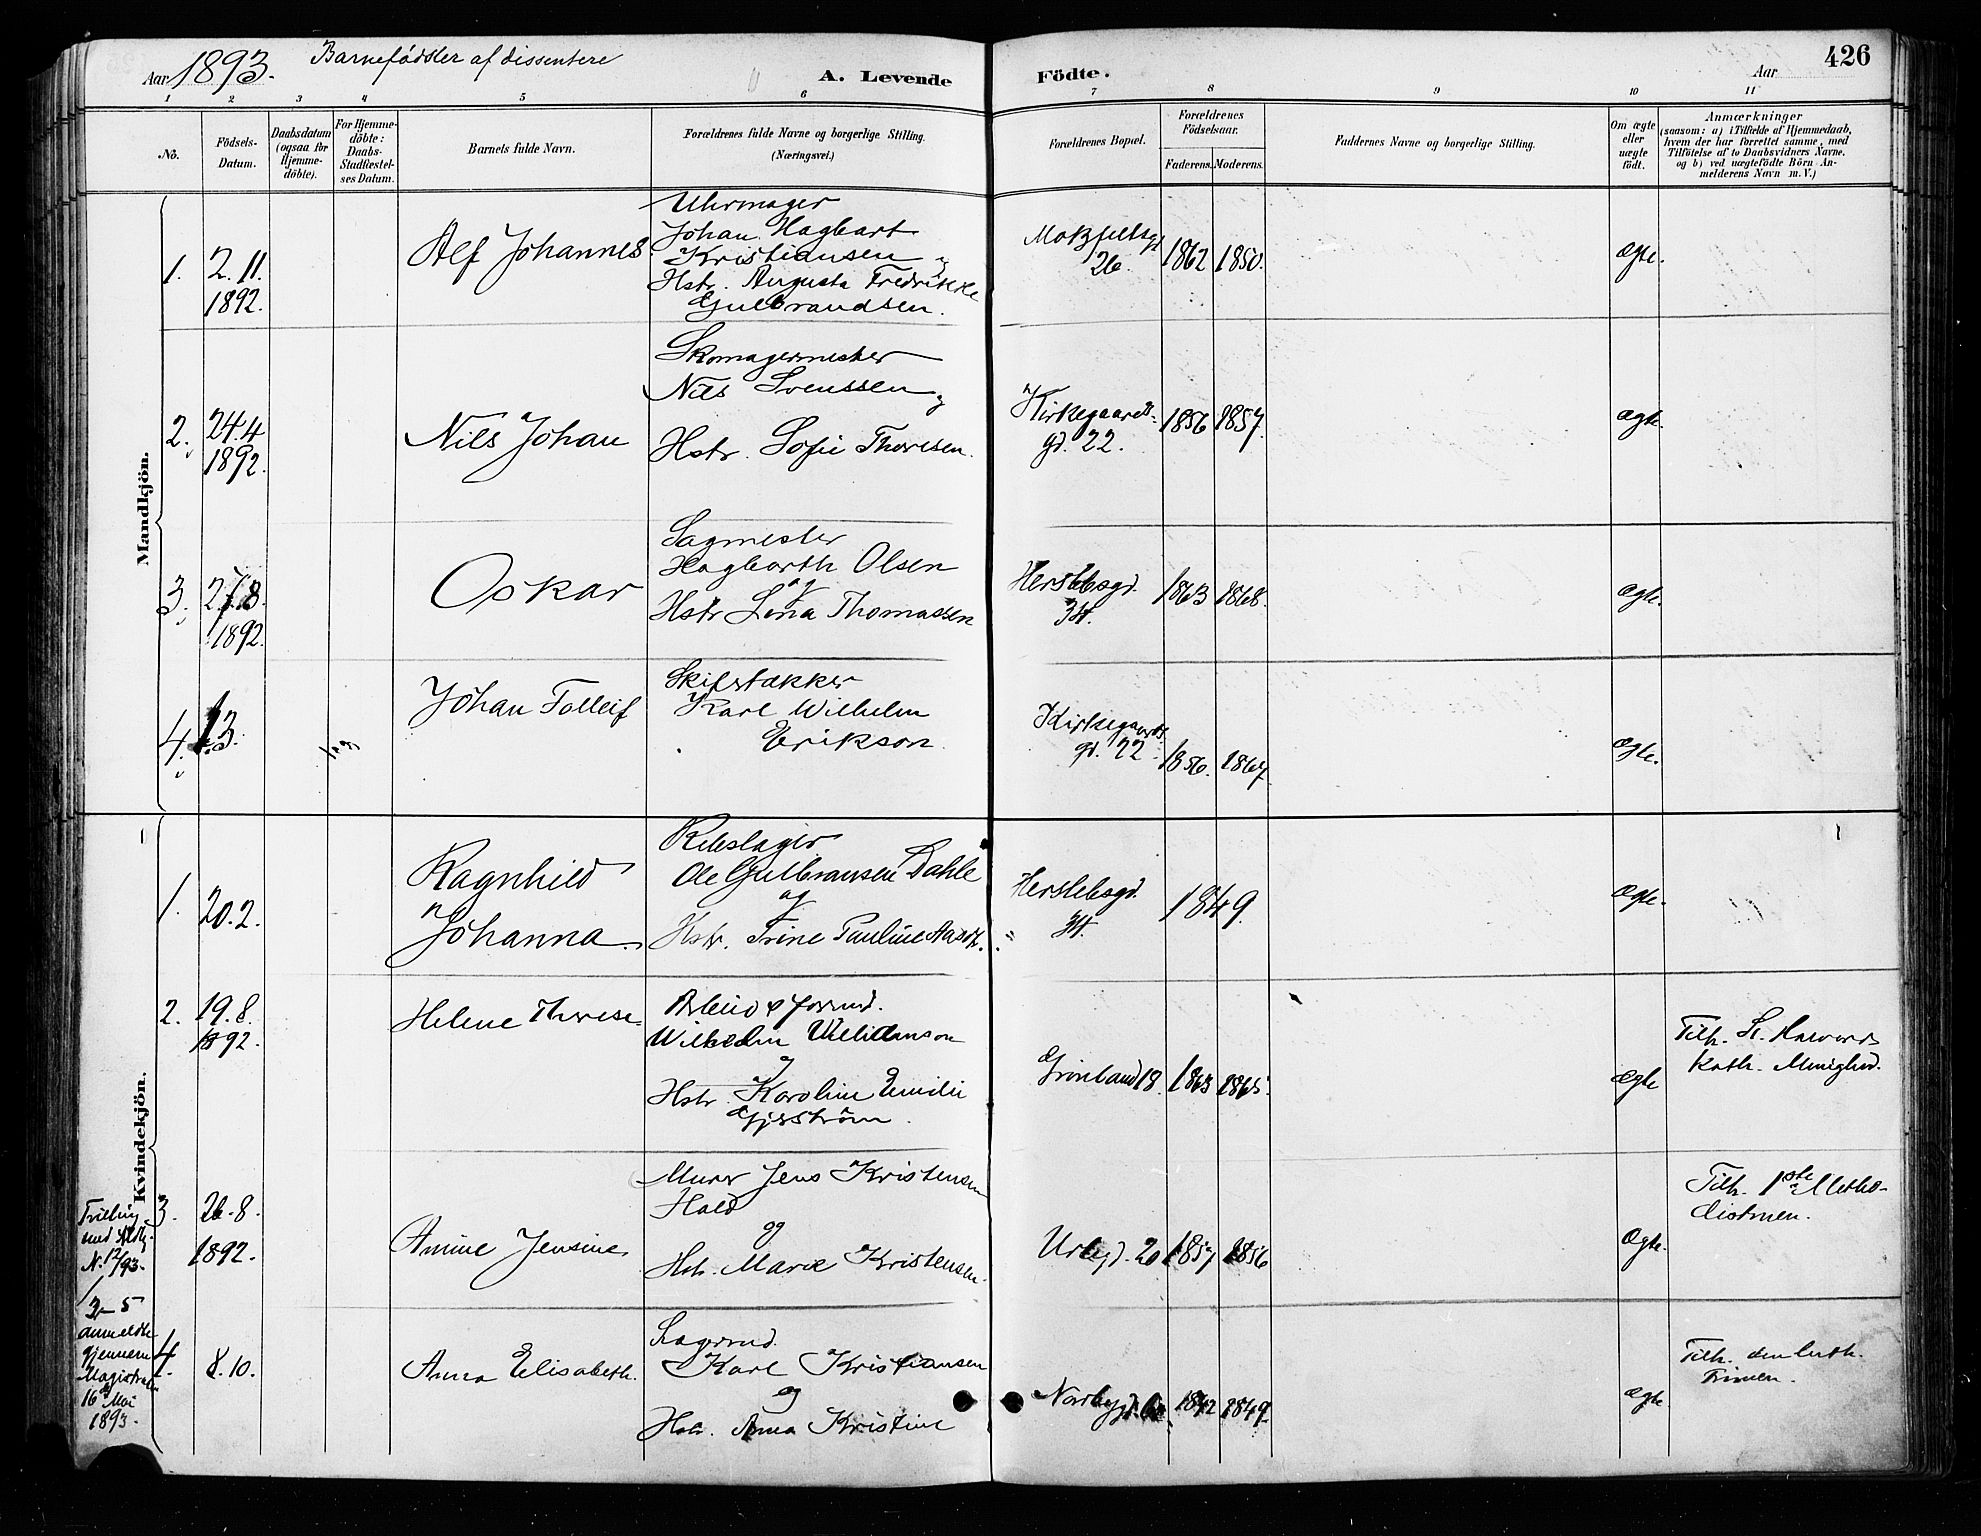 Aar 1893. Barnefødsler af dissentere
A. Levende Födte.
Aar 426
1 2 3 4 5 6 7 8 9 10 11
No.
Födsels-
Datum.
Daabsdatum
(ogsaa för
Hjemme-
döbte).
For Hjemme-
döbte:
Daabs-
Stadfæstel-
ses Datum.
Barnets fulde Navn.
Forældrenes fulde Navne og borgerlige Stilling.
(Næringsvei.)
Forældrenes Bopæl.
Forældrenes
Födselsaar.
Faderens. Moderens.
Faddernes Navne og borgerlige Stilling.
Om ægte
eller
uægte
födt.
Anmærkninger
(saasom: a) i Tilfælde af Hjemmedaab,
hvem der har forrettet samme, med
Tilföielse af to Daabsvidners Navne.
og b) ved uægtefödte Börn An-
melderens Navn m. V.)
Mandkjön.
1. 2.11
1892.
Alf Johannes
Uhrmager
Johan Hagbart
Kristiansen og
Hstr. Augusta Fredrikke
Gulbrandsen.
26.
1862 1850.
ægte.
2. 24.4
1892.
Nils Johan
Skomagermester
Nils Svenssen og
Hstr. Sofie Thoresen.
Kirkegaards-
gd. 22.
1856 1857.
ægte.
3. 27.8.
1892.
Oskar
Sagmester
Hagbarth Olsen
og
Hstr Lina Thomassen
Herslebsgd.
34.
1863 1868.
ægte.
4. 13.
Johan Tolleif
Skifertækker
Karl Wilhelm
Erikson.
Kirkegaards
gd. 22
1856. 1867.
ægte.
Kvindekjön.
1. 20.2.
Ragnhild
Johanna.
Rebslager
Ole Gulbransen Dahle
og
Hstr. Trine Pauline
Herslebsgd.
34.
1849.
ægte.
2. 19.8.
1892.
Helene Therese
Wilhelm
og
Hstr. Karoline Emilie
Grønland 18.
1863 1865.
ægte
Tilh. St.
Kath. Menighed.
3. 26.8.
1892.
Trilling
med
N. 12/93.
Amine Jensine
Murer Jens Kristensen
Hald
og
Hstr. Marie Kristensen.
Urtegd. 20
1857 1856
ægte.
Tilh. 1ste Metho-
distmen.
3-5
anmeldte
gjennem
Magistraten
16 Mai
1893.
4. 8.10.
Anna Elisabeth.
Lagermd.
Karl Kristiansen
og
Hstr. Anna Kristine
Norbygd.
1842 1849.
ægte
Tilh. den luth.
Frimen.